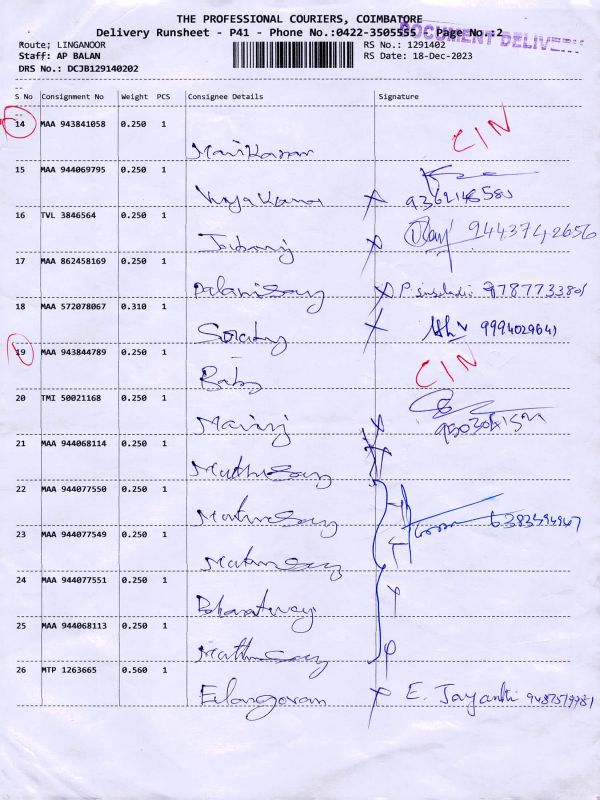 THE PROFESSIONAL COURIERS, COIMBATORE
DOCUMENT DELIVERY
Delivery Runsheet - P41 - Phone No.:0422-3505555 Page No.:2
Route; LINGANOOR RS No.: 1291402
Staff: AP BALAN RS Date: 18-Dec-2023
DRS No.: DCJB129140202
S No Consignment No Weight PCS Consignee Details Signature
14 MAA 943841058 0.250 1 CIN
15 MAA 944069795 0.250 1
16 TVL 3846564 0.250 1 9443742656
17 MAA 862458169 0.250 1
Palanisamy
18 MAA 572078067 0.310 1 9994029641
19 MAA 943844789 0.250 1 CIN
Baby
20 TMI 50021168 0.250 1
21 MAA 944068114 0.250 1
Muthusamy
22 MAA 944077550 0.250 1
Muthusamy
23 MAA 944077549 0.250 1
24 MAA 944077551 0.250 1
25 MAA 944068113 0.250 1
Muthusamy
26 MTP 1263665 0.560 1
Elangovan E. Jayanthi